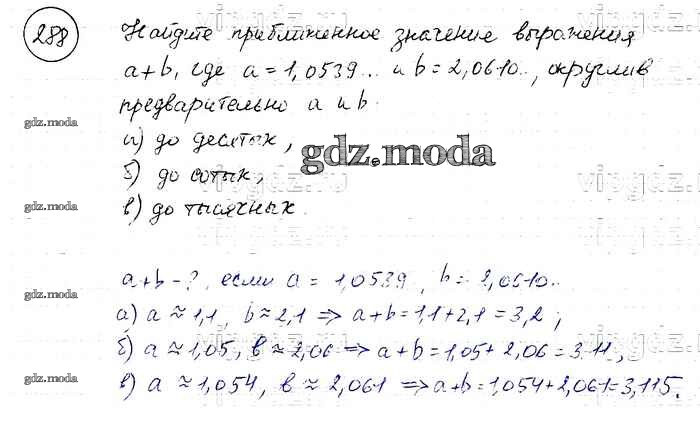 288
Найдите приближенное значение выражения
a+b, где a = 1,0539... и b = 2,0610..., округлив
предварительно a и b.
gdz.moda
а) до десятых,
gdz.moda
б) до сотых,
gdz.moda
в) до тысячных.
a+b - ?, если a = 1,0539.. , b = 2,0610...
gdz.moda
а) a ≈ 1,1, b ≈ 2,1 => a+b = 1,1+2,1 = 3,2;
б) a ≈ 1,05, b ≈ 2,06 => a+b = 1,05+2,06 = 3,11,
в) a ≈ 1,054, b ≈ 2,061 => a+b = 1,054+2,061 = 3,115.
gdz.moda